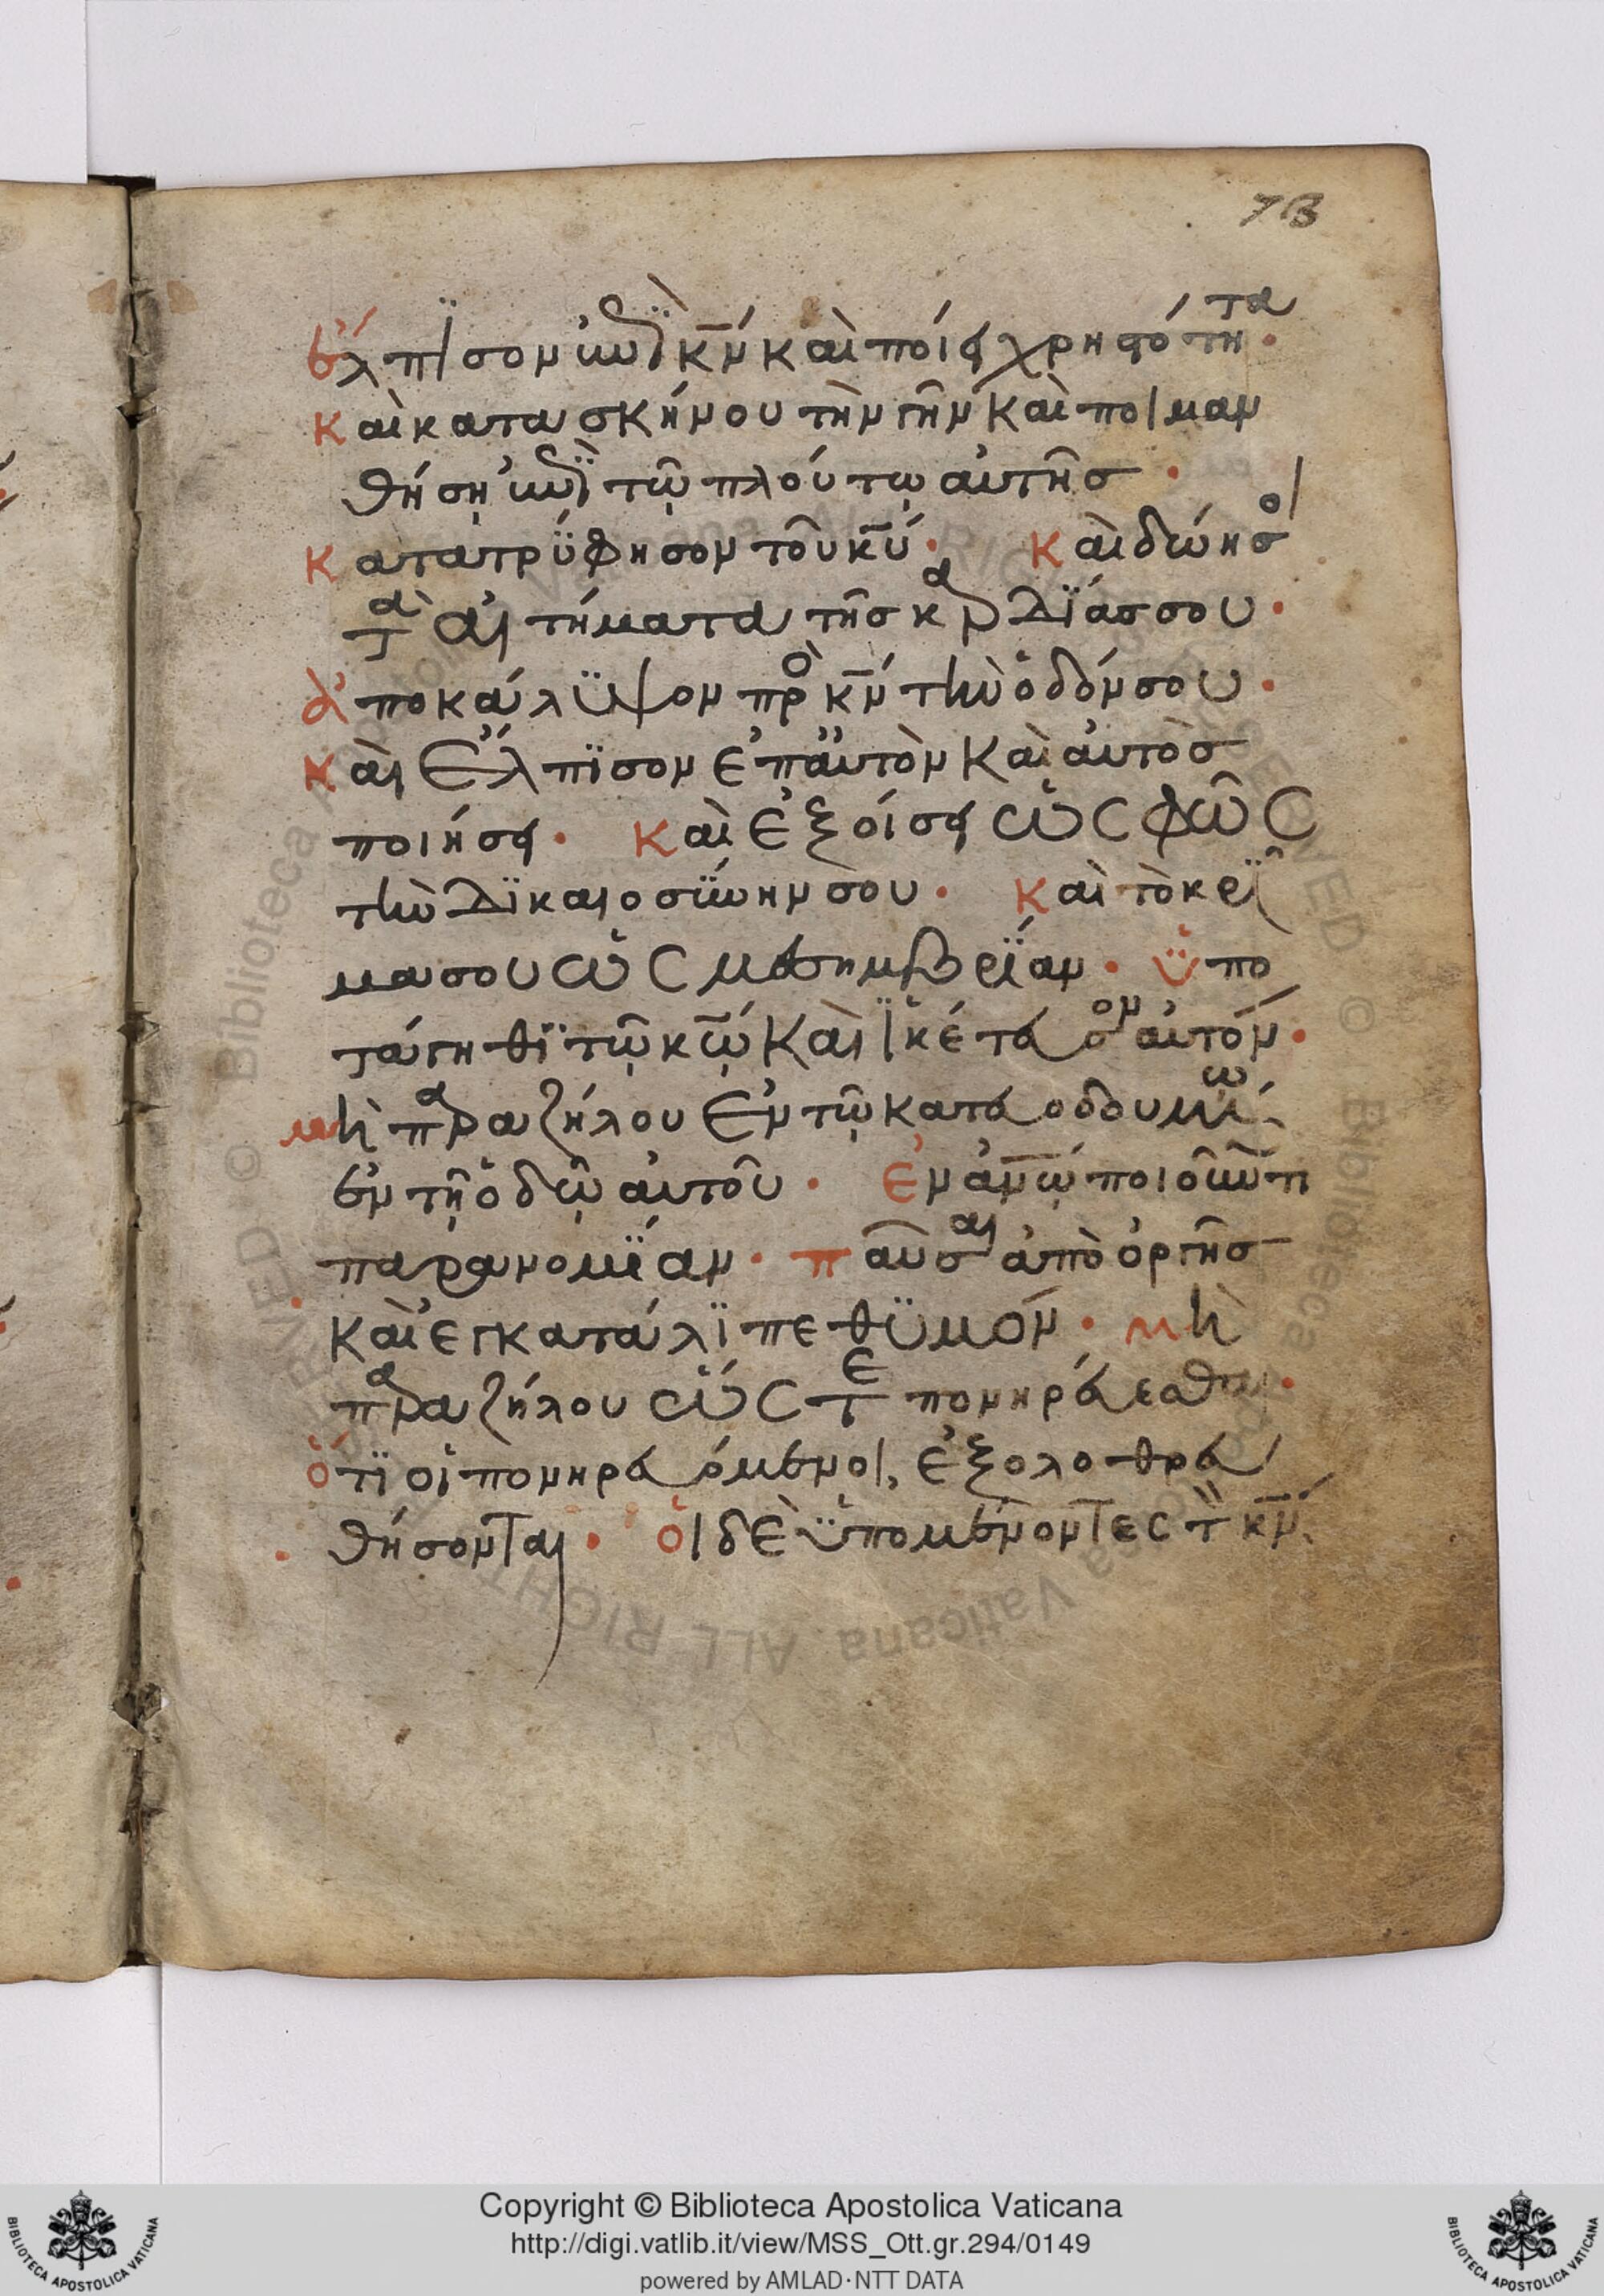 73
ἔλπϊσον ἐπῒ κ̄ν́ καὶ ποίει χρηστότητα ·
καὶ κατασκήνου τὴν γῆν καὶ ποιμαν
θήσῃ ἐπῒ τῷ πλούτῳ αὐτῆσ ·
κατατρΰφησον τοῦ κ̄ύ · καὶ δώησοι
τὰ αἰτήματα τῆσ καρδΐασ σου ·
ἀποκάλϋψον πρὸ κ̄ν́ τὴν ὁδόν σου ·
καὶ ἔλπϊσον ἐπ αὐτὸν καὶ αὐτὸσ
ποιήσει · καὶ ἐξοίσει ὡς φῶς
τὴν δϊκαιοσΰνην σου · καὶ τὸ κρῖ
μα σου ὡς μεσημβρΐαν · ὑπο
τάγηθϊ τῷ κ̄ῷ καὶ ἱκέτευσον αὐτόν ·
μὴ παραζήλου ἐν τῷ κατευοδουμένω
ἐν τῇ ὁδῷ αὐτοῦ · ἐν ἀν̄ῳ ποιοῦντι
παρανομΐαν · παῦσαι ἀπὸ ὀργῆσ
καὶ ἐγκατάλϊπε θϋμόν · μὴ
παραζήλου ὥς τε πονηρεύεσθαι ·
ὅτϊ οἱ πονηρευόμενοι, ἐξολοθρευ
θήσονται · οἱ δὲ ὑπομένοντες τὸν κ̄ν́
Copyright © Biblioteca Apostolica Vaticana
http://digi.vatlib.it/view/MSS_Ott.gr.294/0149
powered by AMLAD·NTT DATA
BIBLIOTECA APOSTOLICA VATICANA
BIBLIOTECA APOSTOLICA VATICANA